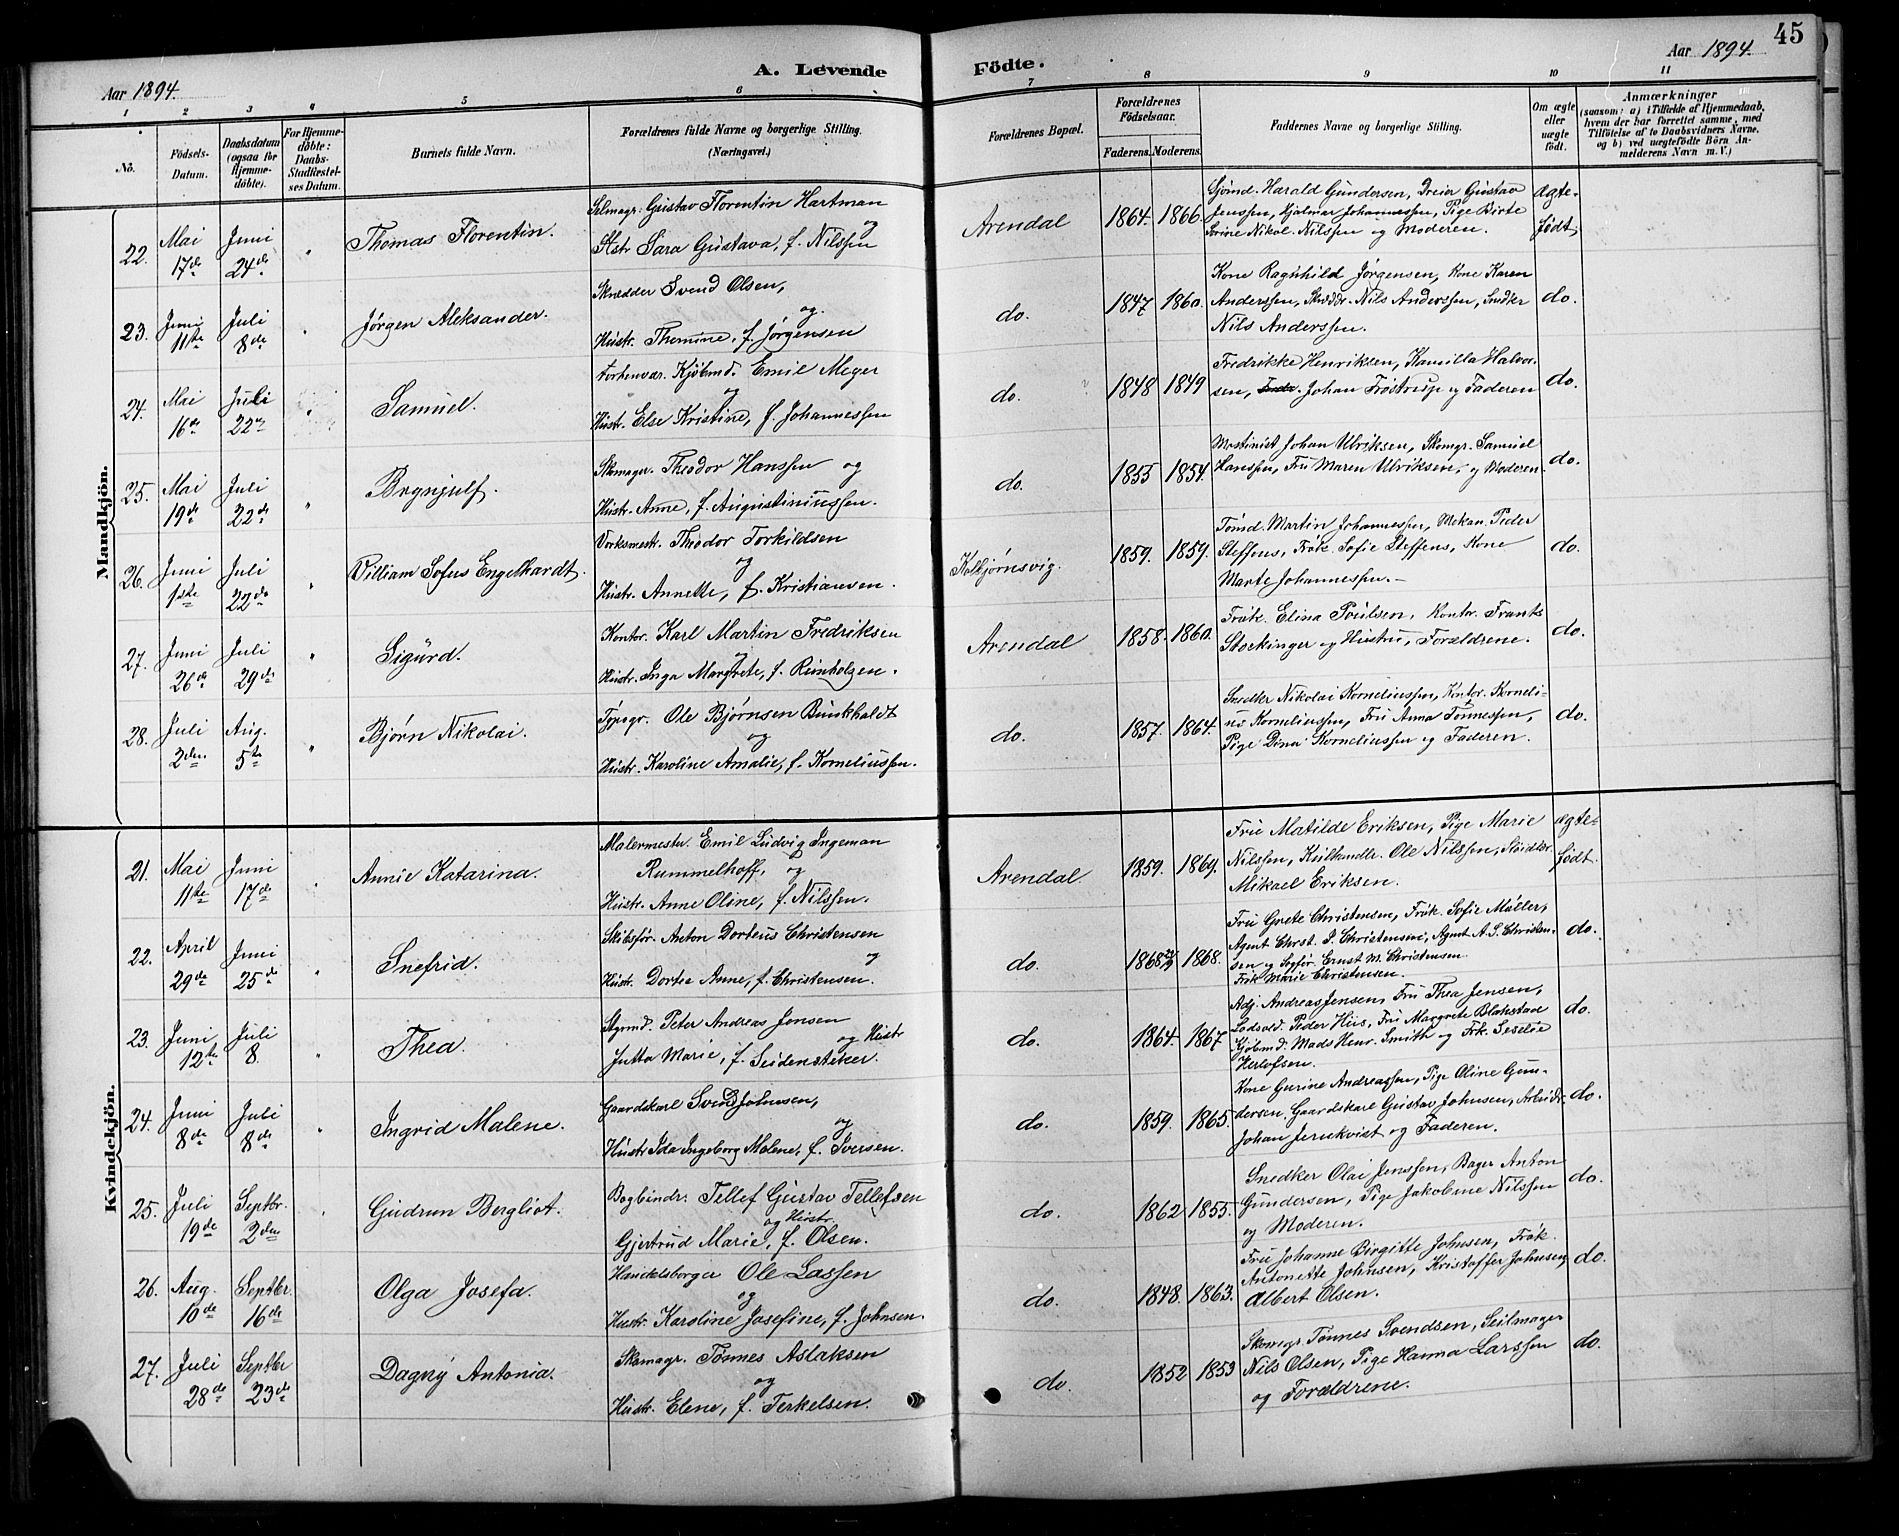 45
Aar 1894.
A. Levende
Födte.
Aar 1894.
1 2 3 4 5 6 7 8 9 10 11
No.
Födsels-
Datum.
Daabsdatum
(ogsaa for
Hjemme-
döbte).
For Hjemme-
döbte:
Daabs-
Stadfæstel-
ses Datum.
Barnets fulde Navn.
Forældrenes fulde Navne og borgerlige Stilling.
(Næringsvei.)
Forældrenes Bopæl.
Forældrenes
Födselsaar.
Faderens. Moderens.
Faddernes Navne og borgerlige Stilling.
Om ægte
eller
uægte
födt.
Anmærkninger
(saasom: a) i Tilfælde af Hjemmedaab,
hvem der har forrettet samme, med
Tilföielse af to Daabsvidners Navne,
og b) ved uægtefödte Börn An-
melderens Navn m. V.)
Mandkjön.
22. Mai 17de
Juni 24de
"
Thomas Florentin.
Selmagr. Gustav Florentin Hartman
og
Hstr. Sara Gustava, f. Nilssen
Arendal
1864. 1866.
Sjömd. Harald Gundersen, Dreier Gustav
Jenssen, Hjalmar Johannessen, Pige Birte
Sorine Nikol. Nilssen og Moderen.
ægte-
födt,
23. Juni 11te
Juli 8de
"
Jørgen Aleksander.
Skrædder Svend Olsen,
og
Hustr. Themine, f. Jørgensen
do.
1847 1860.
Kone Ragnhild Jørgensen, Kone Karen
Anderssen, Skræddr. Nils Anderssen, Snedker
Nils Anderssen.
do.
24. Mai 16de
Juli 22de
"
Samuel.
forhenvær. Kjöbmd. Emil Meyer
og
Hustr. Else Kristine, f. Johannessen
do.
1848 1849
Fredrikke Henriksen, Kamilla Halvor-
sen, Johan Frøstrup og Faderen
do.
25. Mai 19de
Juli 22de
"
Brynjulf.
Skomager. Theodor Hanssen og
Hustr. Anne, f. Augustinussen.
do.
1855 1854.
Maskinist Johan Ulriksen, Skomgr. Samuel
Hanssen, Fru Maren Ulriksen, og Moderen
do.
26. Juni 1ste
Juli 22de
"
William Sofus Engelhardt.
Værksmestr. Theodor Torkildsen
og
Hustr. Annette, f. Kristiansen.
Kolbjørnsvig.
1859. 1859.
Tömd. Martin Johannessen, Mekan. Peder
Steffens, Frök. Sofie Steffens, Kone
Marte Johannessen.
do.
27. Juni 26de
Juli 29de
"
Sigurd.
Kontor. Karl Martin Fredriksen
og
Hustr. Inga Margrete, f. Rimholzen.
Arendal
1858. 1860.
Frøk. Elina Poulsen, Kontor. Frants
Stockinger og Hustru, Forældrene.
do.
28. Juli 2den.
Aug. 5te
"
Bjørn Nikolai.
Typogr. Ole Bjørnsen Bunkholdt
og
Hustr. Karoline Amalie, f. Korneliussen.
do.
1857. 1864.
Snedker Nikolai Korneliussen, Kontor. Korneli-
us Korneliussen, Fru Anna Tønnessen,
Pige Dina Korneliussen og Faderen.
do.
Kvindekjön.
21. Mai 11te
Juni 17de
"
Annie Katarina.
Malermester Emil Ludvig Ingeman
Rummelhoff, og
Hustr. Anne Oline, f. Nilssen.
Arendal.
1859. 1869.
Fru Matilde Eriksen, Pige Marie
Nilssen, Kulhandlr. Ole Nilssen,
Mikael Eriksen.
ægte-
födt.
22. April 29de
Juni 25de
"
Snefrid.
Skibsför. Anton Dorteus Christensen
og
Hustr. Dortea Anne, f. Christensen.
do.
1868 1868.
Fru Grete Christensen, Frök. Sofie Møller,
Agent Chrst. S. Christensen, Agent A. S. Christen-
sen og Ernst M. Christensen.
Frk. Marie Christensen.
do.
23. Juni 12te
Juli 8.
"
Thea.
Styrmd. Peter Andreas Jensen
og Hustr
Jutta Marie, f. Seidensticker.
do.
1864. 1867
Adj. Andreas Jensen, Fru Thea Jensen,
Lodsold. Peder Hus, Fru Margrete Blakstad
Kjöbmd. Mads Henr. Smith og Frk. Seselie
Herlofsen.
do.
24. Juni 8de
Juli 8de
"
Ingrid Malene.
Gaardskarl Svend Johnsen,
og
Hustr Ida Ingeborg Malene, f. Iversen.
do.
1859. 1865.
Kone Gurine Andreassen, Pige Oline Gun-
dersen, Gaardskarl Gustav Johnsen, Arbeidr.
Johan Jernkvist og Faderen.
do.
25. Juli 19de
Septbr. 2den
"
Gudrun Bergliot.
Bogbindr. Tellef Gustav Tellefsen
og Hustr.
Gjertrud Marie, f. Olsen.
do.
1862 1855.
Snedker Olai Jenssen, Bager Anton
Gundersen, Pige Jakobine Nilssen
og Moderen.
do.
26. Aug. 10de
Septbr. 16de
Olga Josefa.
Handelsborger Ole Lassen
og
Hustr. Karoline Josefine, f. Johnsen.
do.
1848. 1863.
Fru Johanne Birgitte Johnsen, Frøk.
Antonette Johnsen, Kristoffer Johnsen
Albert Olsen.
do.
27. Juli 28de
Septbr 23de
Dagny Antonia.
Skomagr. Tönnes Aslaksen
og
Hustr. Elene, f. Terkelsen.
do.
1852 1853
Skomgr Tønnes Svendsen, Seilmager
Nils Olsen, Pige Hanna Larssen
og Forældrene.
do.